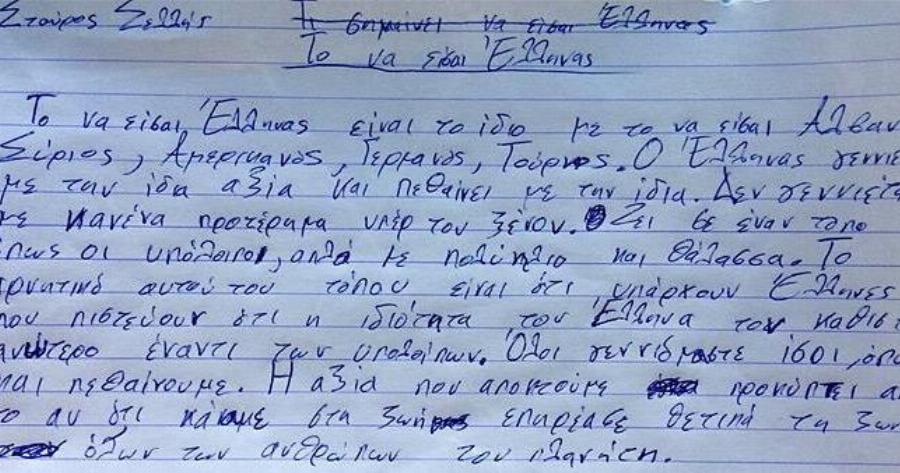 Σταύρος Σελλής Τι σημαίνει να είσαι Έλληνας
Το να είσαι Έλληνας
Το να είσαι Έλληνας είναι το ίδιο με το να είσαι Αλβαν
Σύριος, Αμερικανός, Γερμανός, Τούρκος. Ο Έλληνας γεννιέ
με την ίδια αξία και πεθαίνει με την ίδια. Δεν γεννιέτα
με κανένα προτέρημα υπέρ του ξένου. Ζει σε έναν τόπο
όπως οι υπόλοιποι, απλά με πολύ ήλιο και θάλασσα. Το
αρνητικό αυτού του τόπου είναι ότι υπάρχουν Έλληνες
που πιστεύουν ότι η ιδιότητα του Έλληνα τον καθιστ
ανώτερο έναντι των υπολοίπων. Όλοι γεννιόμαστε ίσοι, όπω
και πεθαίνουμε. Η αξία που αποκτούμε προκύπτει α
το αν ότι κάναμε στη ζωή επηρέασε θετικά τη ζω
όλων των ανθρώπων του πλανήτη.